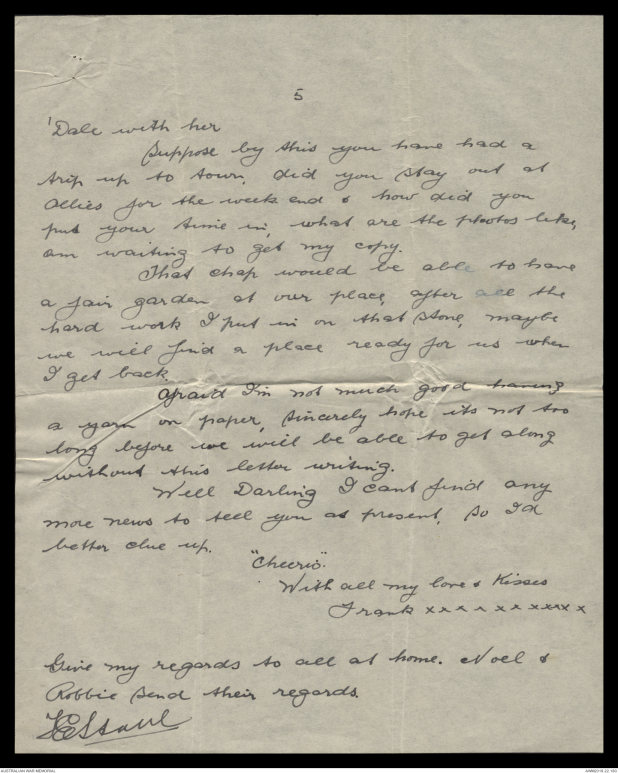 5
'Dale with her
Suppose by this you have had a
trip up to town, did you stay out at
Allies for the week end & how did you
put your time in, what are the photos like,
am waiting to get my copy.
That chap would be able to have
a fair garden at our place, after all the
hard work I put in on that stone, maybe
we will find a place ready for us when
I get back.
Afraid I'm not much good having
a yarn on paper, sincerely hope its not too
long before we will be able to get along
without this letter writing.
Well Darling I cant find any
more news to tell you at present, so Id
better clue up.
"Cheerio".
With all my love & Kisses
Frank x x x x x x x x x x x
Give my regards to all at home. Noel &
Robbie send their regards.
AUSTRALIAN WAR MEMORIAL